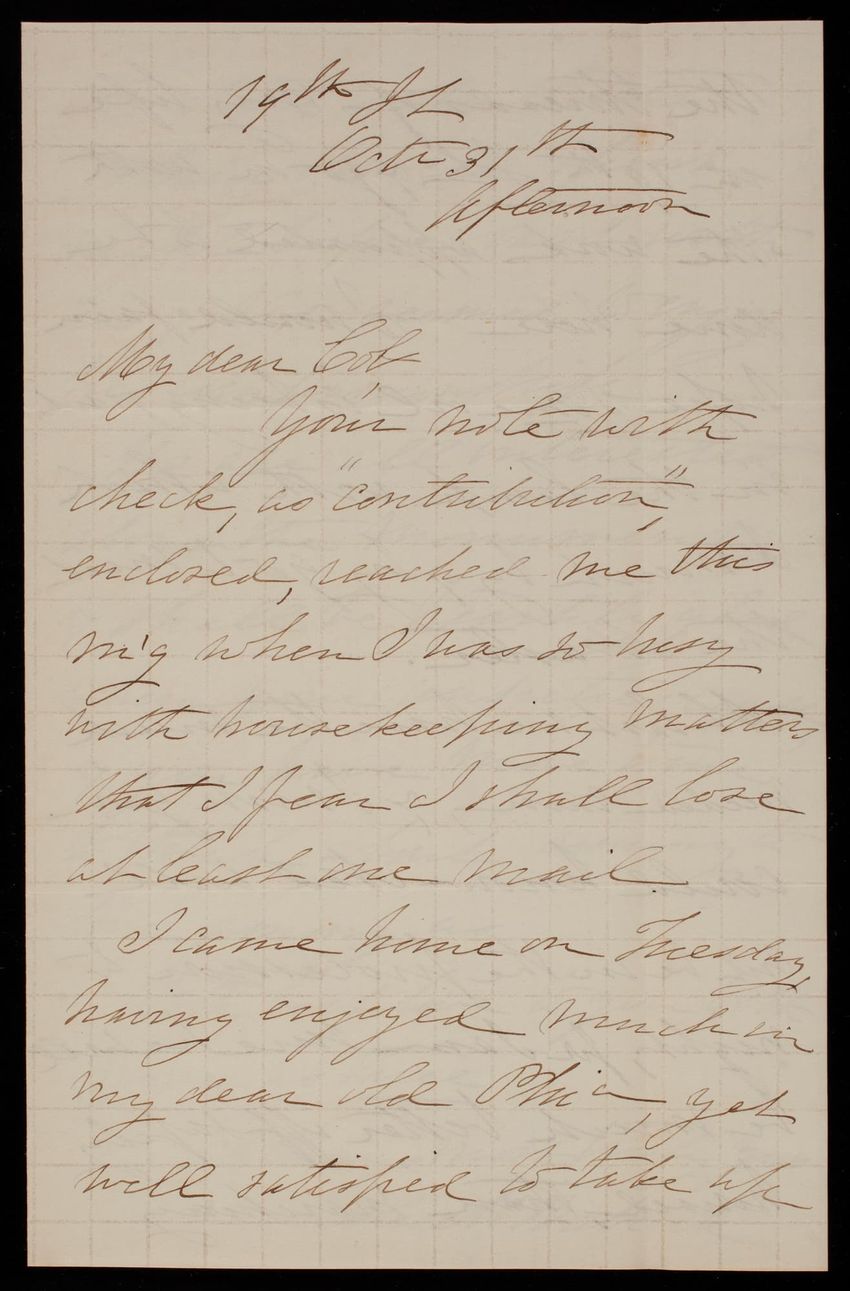 19th St
Octr 31th
Afternoon
My dear Col,
Your note with
check, as "contribution",
enclosed, reached me this
m'g when I was so busy
with housekeeping matters
that I fear I shall lose
at least one mail.
I came home on Tuesday,
having enjoyed much in
my dear old Phia, yet
well satisfied to take up